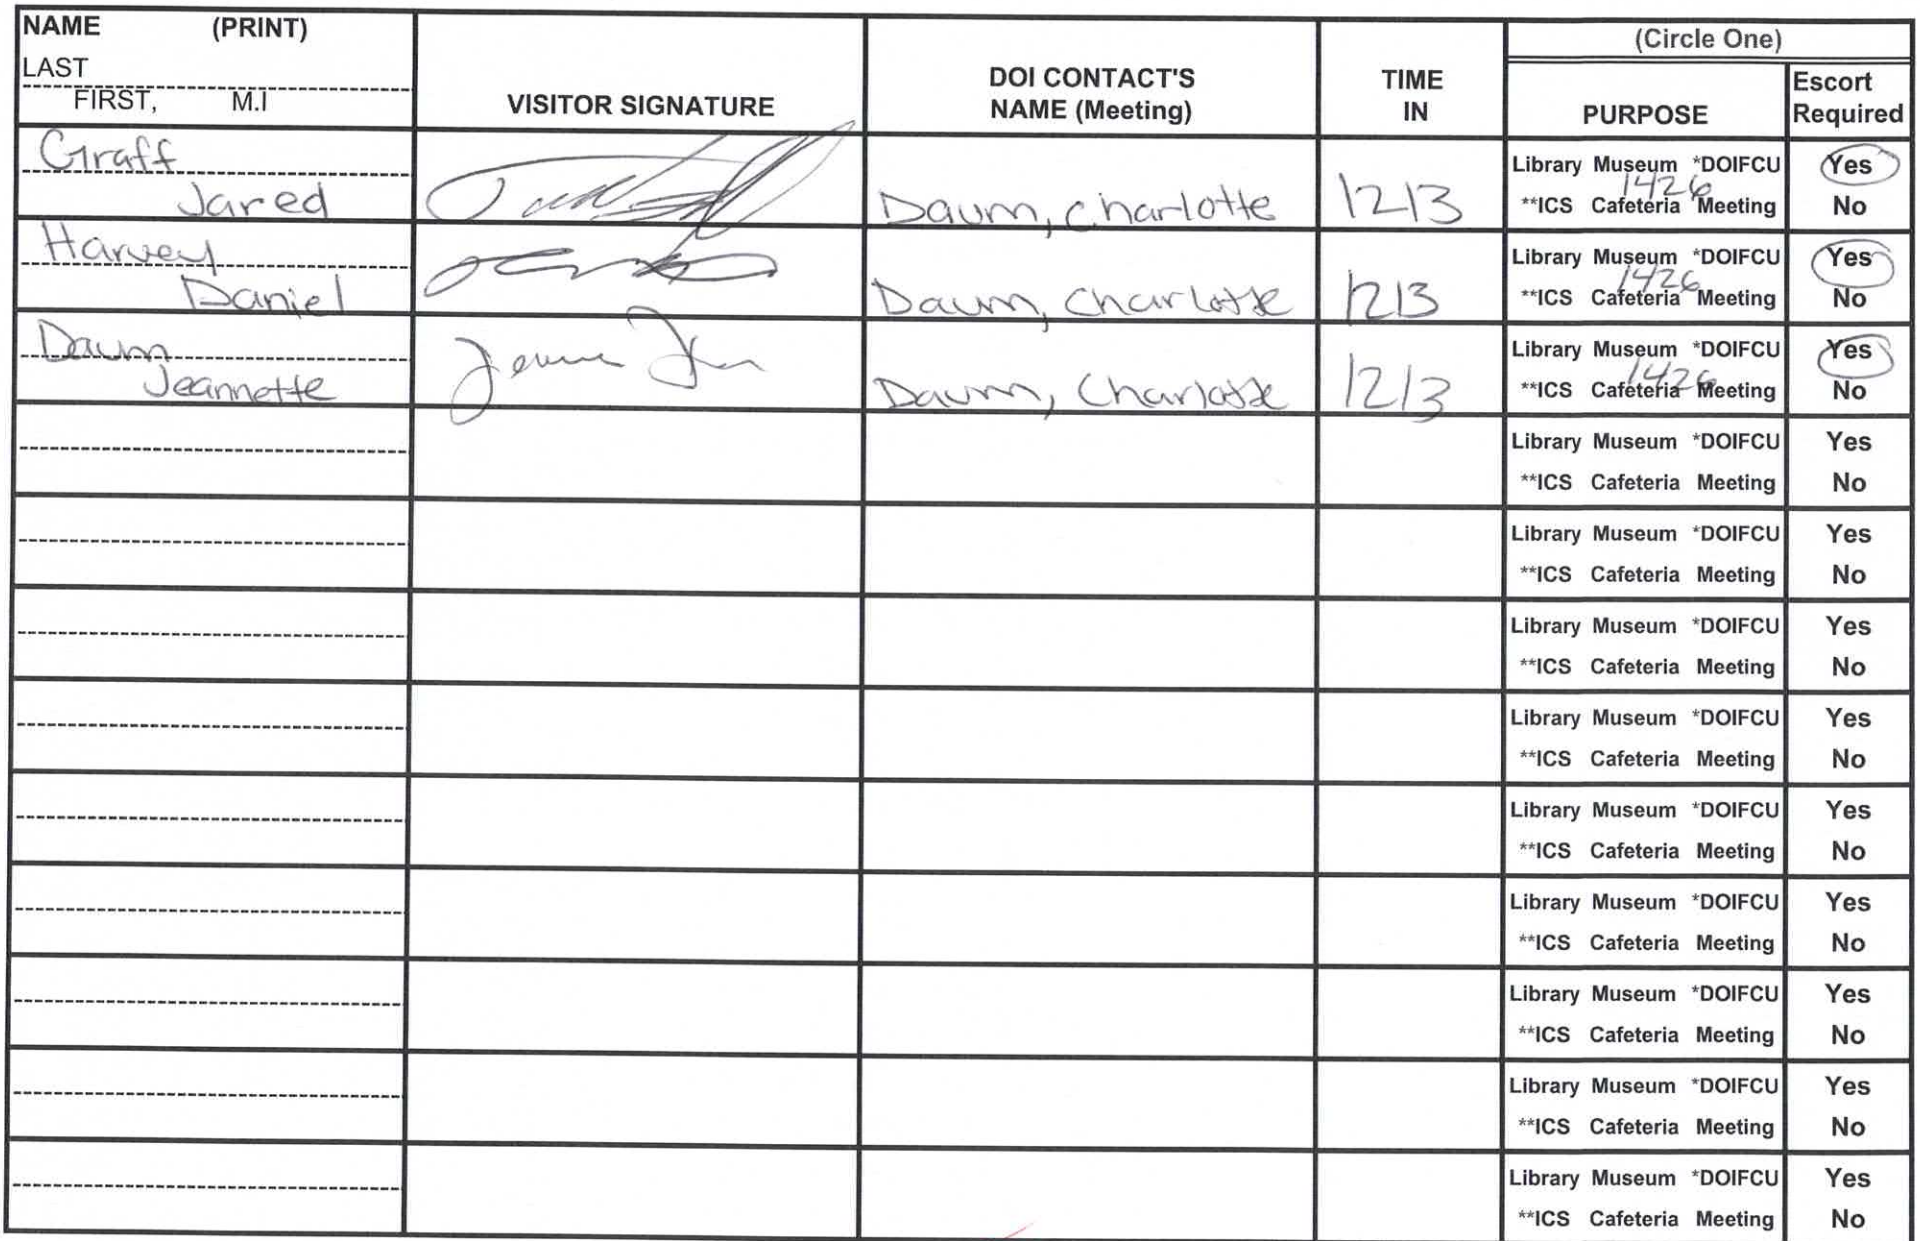 NAME (PRINT)
LAST
FIRST, M.I
VISITOR SIGNATURE
DOI CONTACT'S
NAME (Meeting)
TIME
IN
(Circle One)
PURPOSE
Escort
Required
Graff
Jared
Daum, Charlotte
1213
Library Museum *DOIFCU
1426
**ICS Cafeteria Meeting
Yes
No
Harvey
Daniel
Daum, Charlotte
1213
Library Museum *DOIFCU
1426
**ICS Cafeteria Meeting
Yes
No
Daum
Jeannette
Daum, Charlotte
1213
Library Museum *DOIFCU
1426
**ICS Cafeteria Meeting
Yes
No
Library Museum *DOIFCU Yes
**ICS Cafeteria Meeting No
Library Museum *DOIFCU Yes
**ICS Cafeteria Meeting No
Library Museum *DOIFCU Yes
**ICS Cafeteria Meeting No
Library Museum *DOIFCU Yes
**ICS Cafeteria Meeting No
Library Museum *DOIFCU Yes
**ICS Cafeteria Meeting No
Library Museum *DOIFCU Yes
**ICS Cafeteria Meeting No
Library Museum *DOIFCU Yes
**ICS Cafeteria Meeting No
Library Museum *DOIFCU Yes
**ICS Cafeteria Meeting No
Library Museum *DOIFCU Yes
**ICS Cafeteria Meeting No